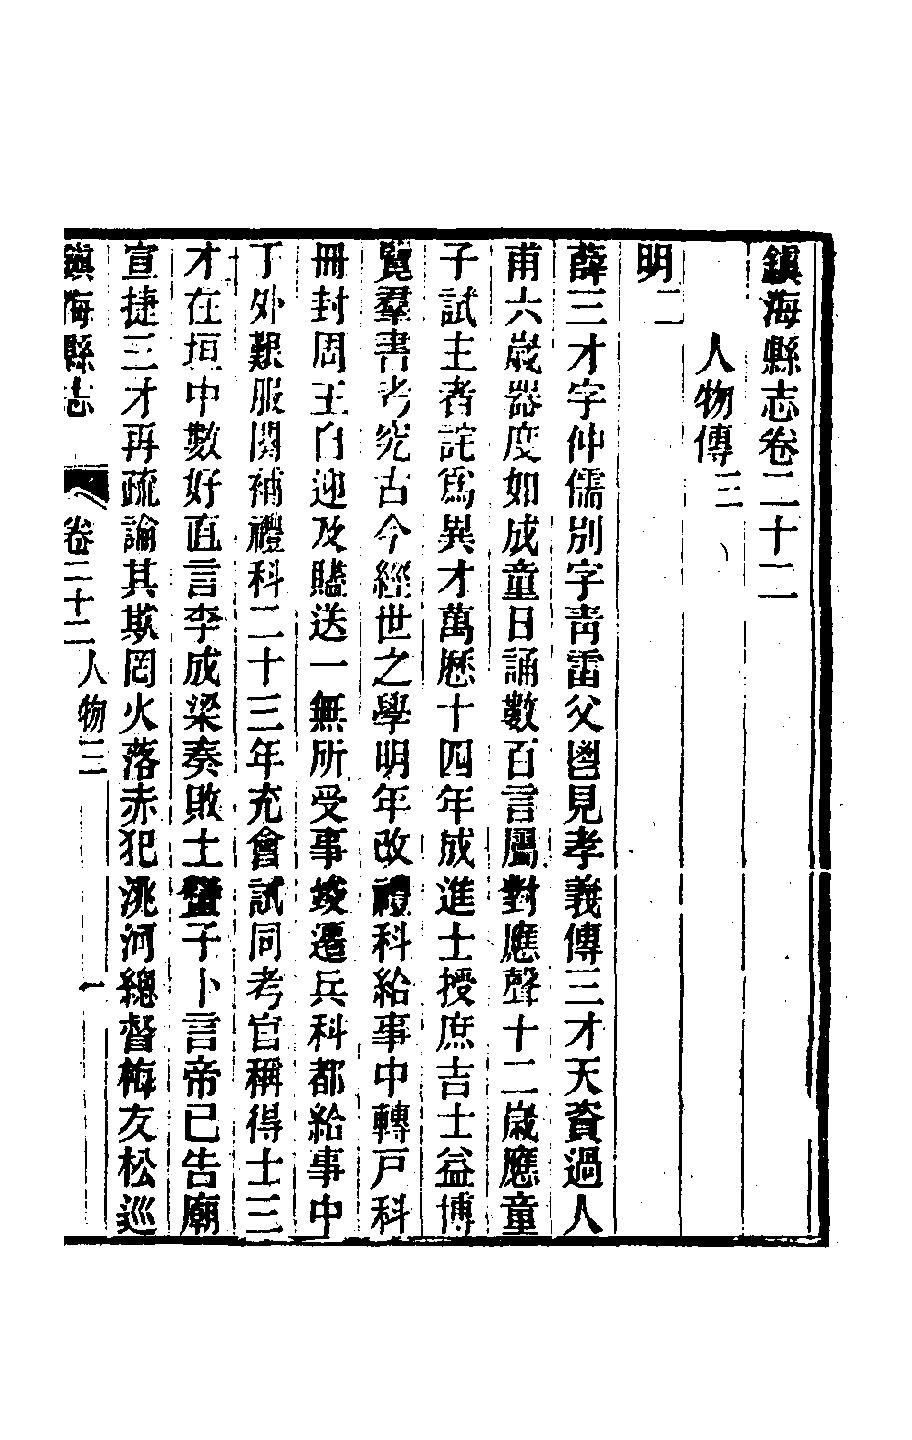 鎭海縣志卷二十二
人物傳三
明二
薛三才字仲儒別字靑雷父岜見孝義傳三才天資過人
甫六歲器度如成童日誦數百言屬對應聲十二歲應童
子試主者詫爲異才萬厯十四年成進士授庶吉士益博
覽羣書考究古今經世之學明年改禮科給事中轉戸科
冊封周王自迎及贐送一無所受事竣遷兵科都給事中
丁外艱服闋補禮科二十三年充會試同考官稱得士三
才在垣中數好直言李成梁奏敗土蠻子卜言帝已告廟
宣捷三才再疏論其欺罔火落赤犯洮河總督梅友松巡
鎭海縣志 卷二十二 人物三 一